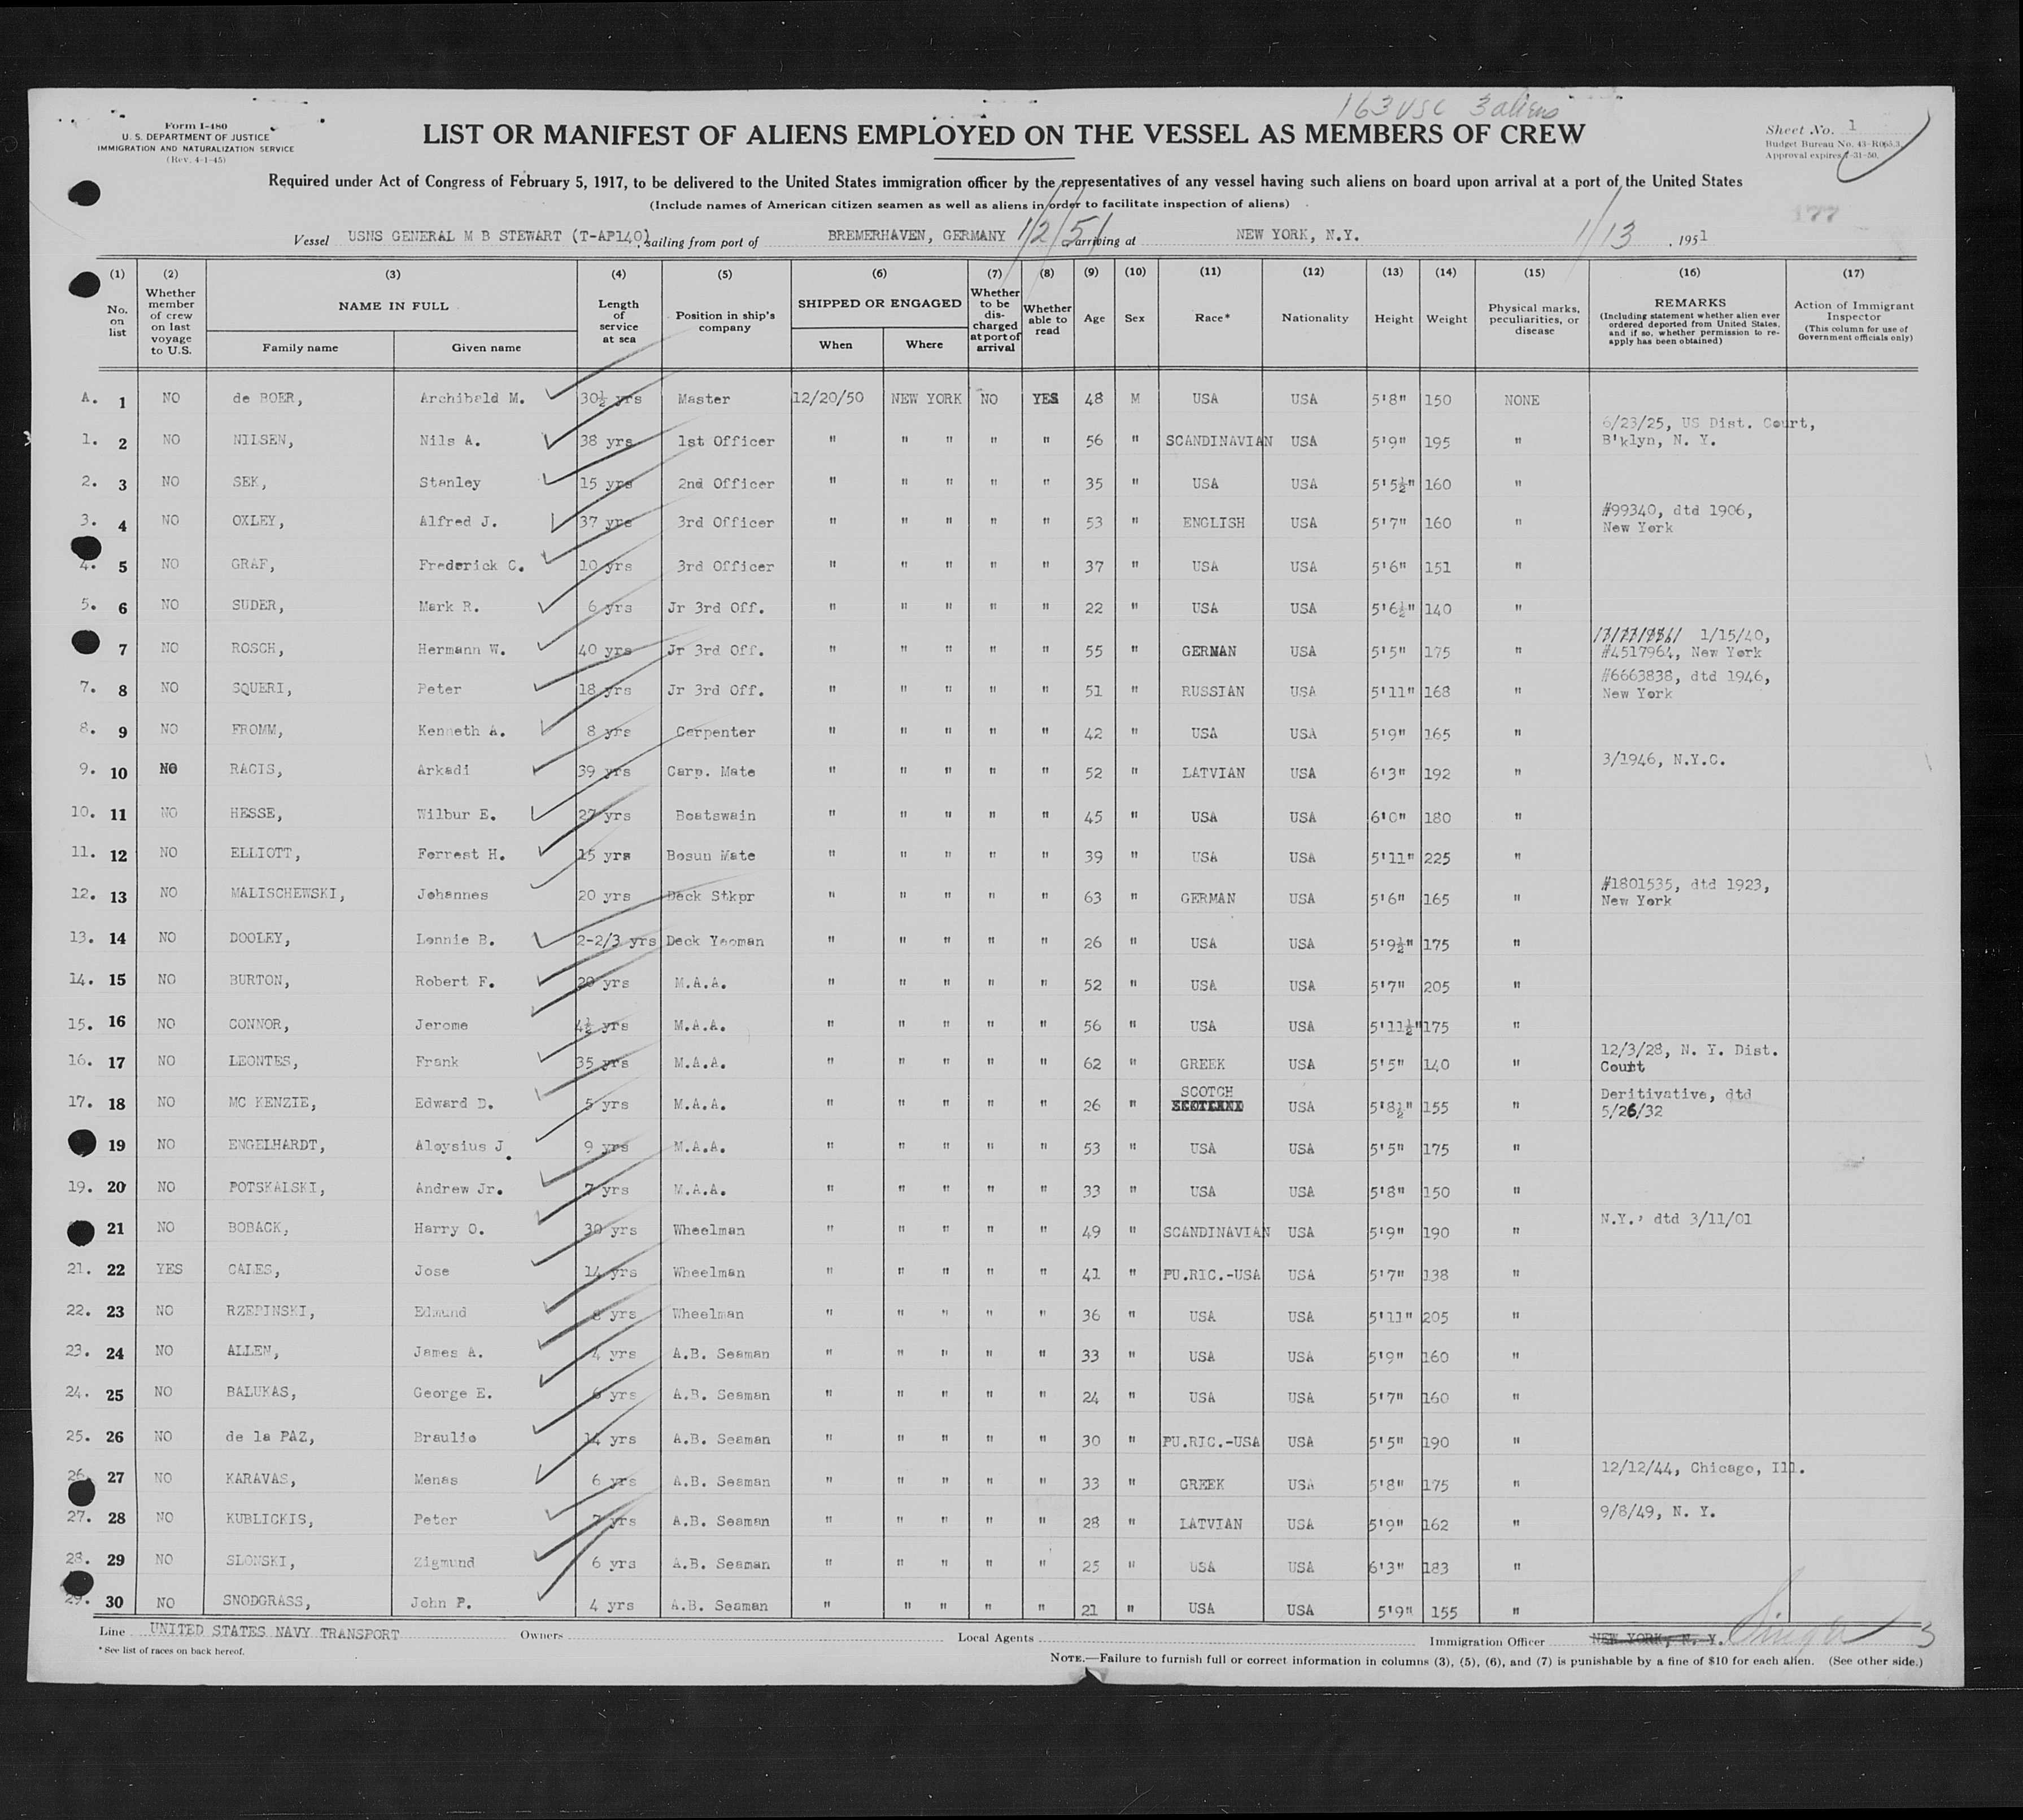 163 USC 3 aliens
Form I-480
U. S. DEPARTMENT OF JUSTICE
IMMIGRATION AND NATURALIZATION SERVICE
(Rev. 4-1-45)
LIST OR MANIFEST OF ALIENS EMPLOYED ON THE VESSEL AS MEMBERS OF CREW
Sheet No. 1
Budget Bureau No. 43-R065.3.
Approval expires 7-31-50.
Required under Act of Congress of February 5, 1917, to be delivered to the United States immigration officer by the representatives of any vessel having such aliens on board upon arrival at a port of the United States
(Include names of American citizen seamen as well as aliens in order to facilitate inspection of aliens)
177
Vessel USNS GENERAL M B STEWART (T-AP140) sailing from port of BREMERHAVEN, GERMANY 1/2/51 arriving at NEW YORK, N.Y. 1/13, 1951
(1) (2) (3) (4) (5) (6) (7) (8) (9) (10) (11) (12) (13) (14) (15) (16) (17)
No. on list
Whether member of crew on last voyage to U.S.
NAME IN FULL
Family name Given name
Length of service at sea
Position in ship's company
SHIPPED OR ENGAGED
When Where
Whether to be discharged at port of arrival
Whether able to read
Age Sex Race* Nationality Height Weight
Physical marks, peculiarities, or disease
REMARKS
(Including statement whether alien ever ordered deported from United States, and if so, whether permission to re-apply has been obtained)
Action of Immigrant Inspector
(This column for use of Government officials only)
A. 1 NO de BOER, Archibald M. 30½ yrs Master 12/20/50 NEW YORK NO YES 48 M USA USA 5'8" 150 NONE
1. 2 NO NILSEN, Nils A. 38 yrs 1st Officer " " " " " 56 " SCANDINAVIAN USA 5'9" 195 " 6/23/25, US Dist. Court, B'klyn, N. Y.
2. 3 NO SEK, Stanley 15 yrs 2nd Officer " " " " " 35 " USA USA 5'5½" 160 "
3. 4 NO OXLEY, Alfred J. 37 yrs 3rd Officer " " " " " 53 " ENGLISH USA 5'7" 160 " #99340, dtd 1906, New York
4. 5 NO GRAF, Frederick C. 10 yrs 3rd Officer " " " " " 37 " USA USA 5'6" 151 "
5. 6 NO SUDER, Mark R. 6 yrs Jr 3rd Off. " " " " " 22 " USA USA 5'6½" 140 "
7 NO ROSCH, Hermann W. 40 yrs Jr 3rd Off. " " " " " 55 " GERMAN USA 5'5" 175 " 1/15/40, #4517964, New York
7. 8 NO SQUERI, Peter 18 yrs Jr 3rd Off. " " " " " 51 " RUSSIAN USA 5'11" 168 " #6663838, dtd 1946, New York
8. 9 NO FROMM, Kenneth A. 8 yrs Carpenter " " " " " 42 " USA USA 5'9" 165 "
9. 10 NO RACIS, Arkadi 39 yrs Carp. Mate " " " " " 52 " LATVIAN USA 6'3" 192 " 3/1946, N.Y.C.
10. 11 NO HESSE, Wilbur E. 27 yrs Boatswain " " " " " 45 " USA USA 6'0" 180 "
11. 12 NO ELLIOTT, Forrest H. 15 yrs Bosun Mate " " " " " 39 " USA USA 5'11" 225 "
12. 13 NO MALISCHEWSKI, Johannes 20 yrs Deck Stkpr " " " " " 63 " GERMAN USA 5'6" 165 " #1801535, dtd 1923, New York
13. 14 NO DOOLEY, Lonnie B. 2-2/3 yrs Deck Yeoman " " " " " 26 " USA USA 5'9½" 175 "
14. 15 NO BURTON, Robert F. 20 yrs M.A.A. " " " " " 52 " USA USA 5'7" 205 "
15. 16 NO CONNOR, Jerome 4½ yrs M.A.A. " " " " " 56 " USA USA 5'11½" 175 "
16. 17 NO LEONTES, Frank 35 yrs M.A.A. " " " " " 62 " GREEK USA 5'5" 140 " 12/3/28, N. Y. Dist. Court
17. 18 NO MC KENZIE, Edward D. 5 yrs M.A.A. " " " " " 26 " SCOTCH USA 5'8½" 155 " Deritivative, dtd 5/26/32
19 NO ENGELHARDT, Aloysius J. 9 yrs M.A.A. " " " " " 53 " USA USA 5'5" 175 "
19. 20 NO POTSKALSKI, Andrew Jr. 7 yrs M.A.A. " " " " " 33 " USA USA 5'8" 150 "
21 NO BOBACK, Harry O. 30 yrs Wheelman " " " " " 49 " SCANDINAVIAN USA 5'9" 190 " N.Y., dtd 3/11/01
21. 22 YES CALES, Jose 14 yrs Wheelman " " " " " 41 " PU.RIC.-USA USA 5'7" 138 "
22. 23 NO RZEPINSKI, Edmund 8 yrs Wheelman " " " " " 36 " USA USA 5'11" 205 "
23. 24 NO ALLEN, James A. 4 yrs A.B. Seaman " " " " " 33 " USA USA 5'9" 160 "
24. 25 NO BALUKAS, George E. 6 yrs A.B. Seaman " " " " " 24 " USA USA 5'7" 160 "
25. 26 NO de la PAZ, Braulio 14 yrs A.B. Seaman " " " " " 30 " PU.RIC.-USA USA 5'5" 190 "
26. 27 NO KARAVAS, Menas 6 yrs A.B. Seaman " " " " " 33 " GREEK USA 5'8" 175 " 12/12/44, Chicago, Ill.
27. 28 NO KUBLICKIS, Peter 7 yrs A.B. Seaman " " " " " 28 " LATVIAN USA 5'9" 162 " 9/8/49, N. Y.
28. 29 NO SLONSKI, Zigmund 6 yrs A.B. Seaman " " " " " 25 " USA USA 6'3" 183 "
29. 30 NO SNODGRASS, John P. 4 yrs A.B. Seaman " " " " " 21 " USA USA 5'9" 155 "
Line UNITED STATES NAVY TRANSPORT Owners Local Agents Immigration Officer NEW YORK, N. Y. 3
* See list of races on back hereof.
NOTE.—Failure to furnish full or correct information in columns (3), (5), (6), and (7) is punishable by a fine of $10 for each alien. (See other side.)